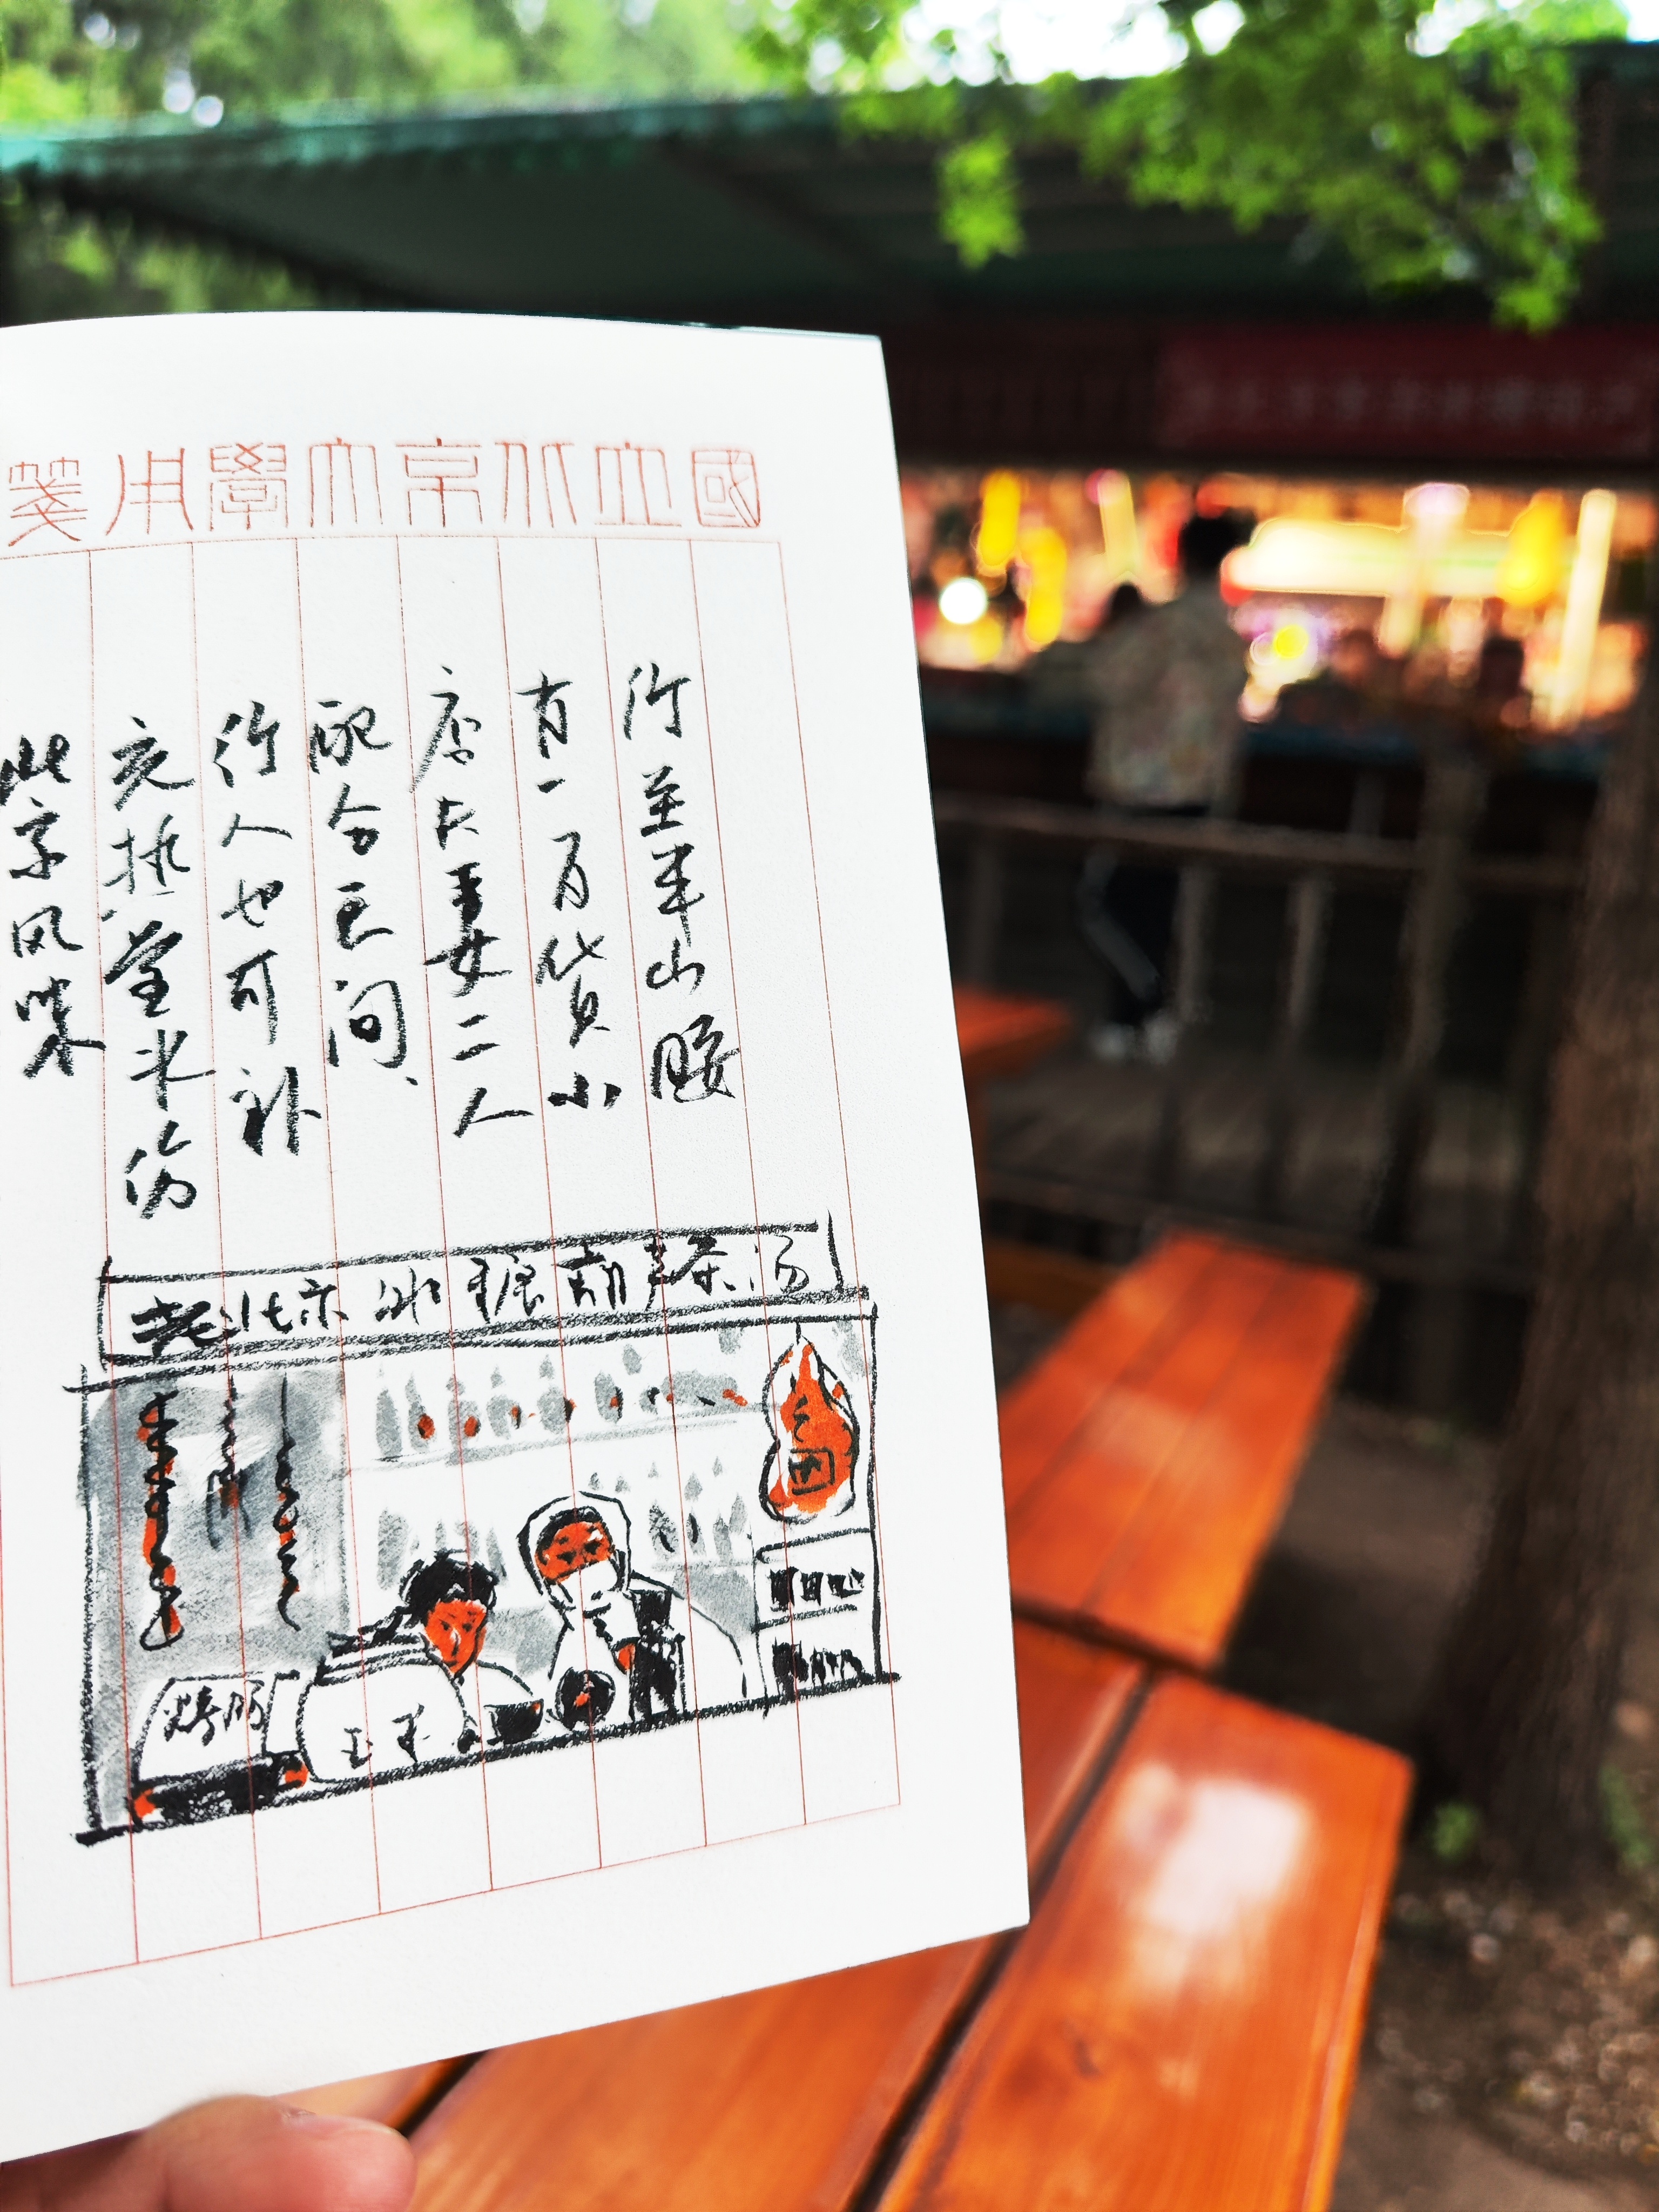 國立北京大學用箋
行至半山腰
有一百货小
店夫妻二人
配合无间、
行人也可补
充热量来份
北京风味
老北京冰糖葫芦茶汤
烤肠
玉米